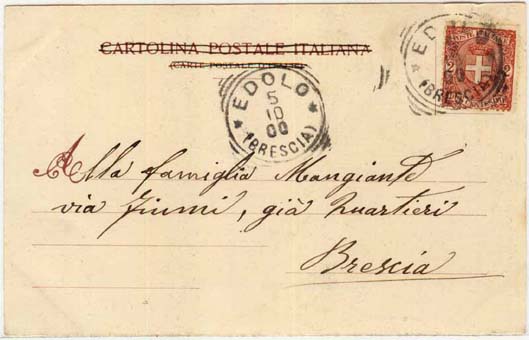 CARTOLINA POSTALE ITALIANA
(CARTE POSTALE D'ITALIE)
EDOLO
5
10
00
(BRESCIA)
EDOLO
(BRESCIA)
2 2
Alla famiglia Mangiante
via Fiumi, già Quartieri
Brescia